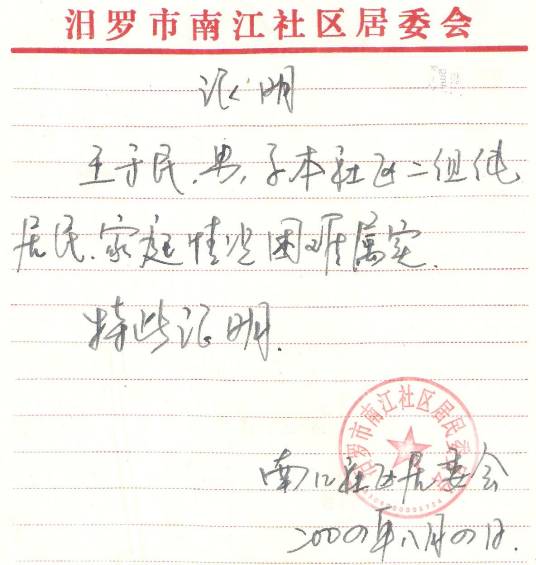 汨罗市南江社区居委会
证明
王于民,男,系本社区二组纯
居民、家庭情况困难属实.
特此证明.
汨罗市南江社区居民委员会
南江社区居委会
二00四年八月四日.